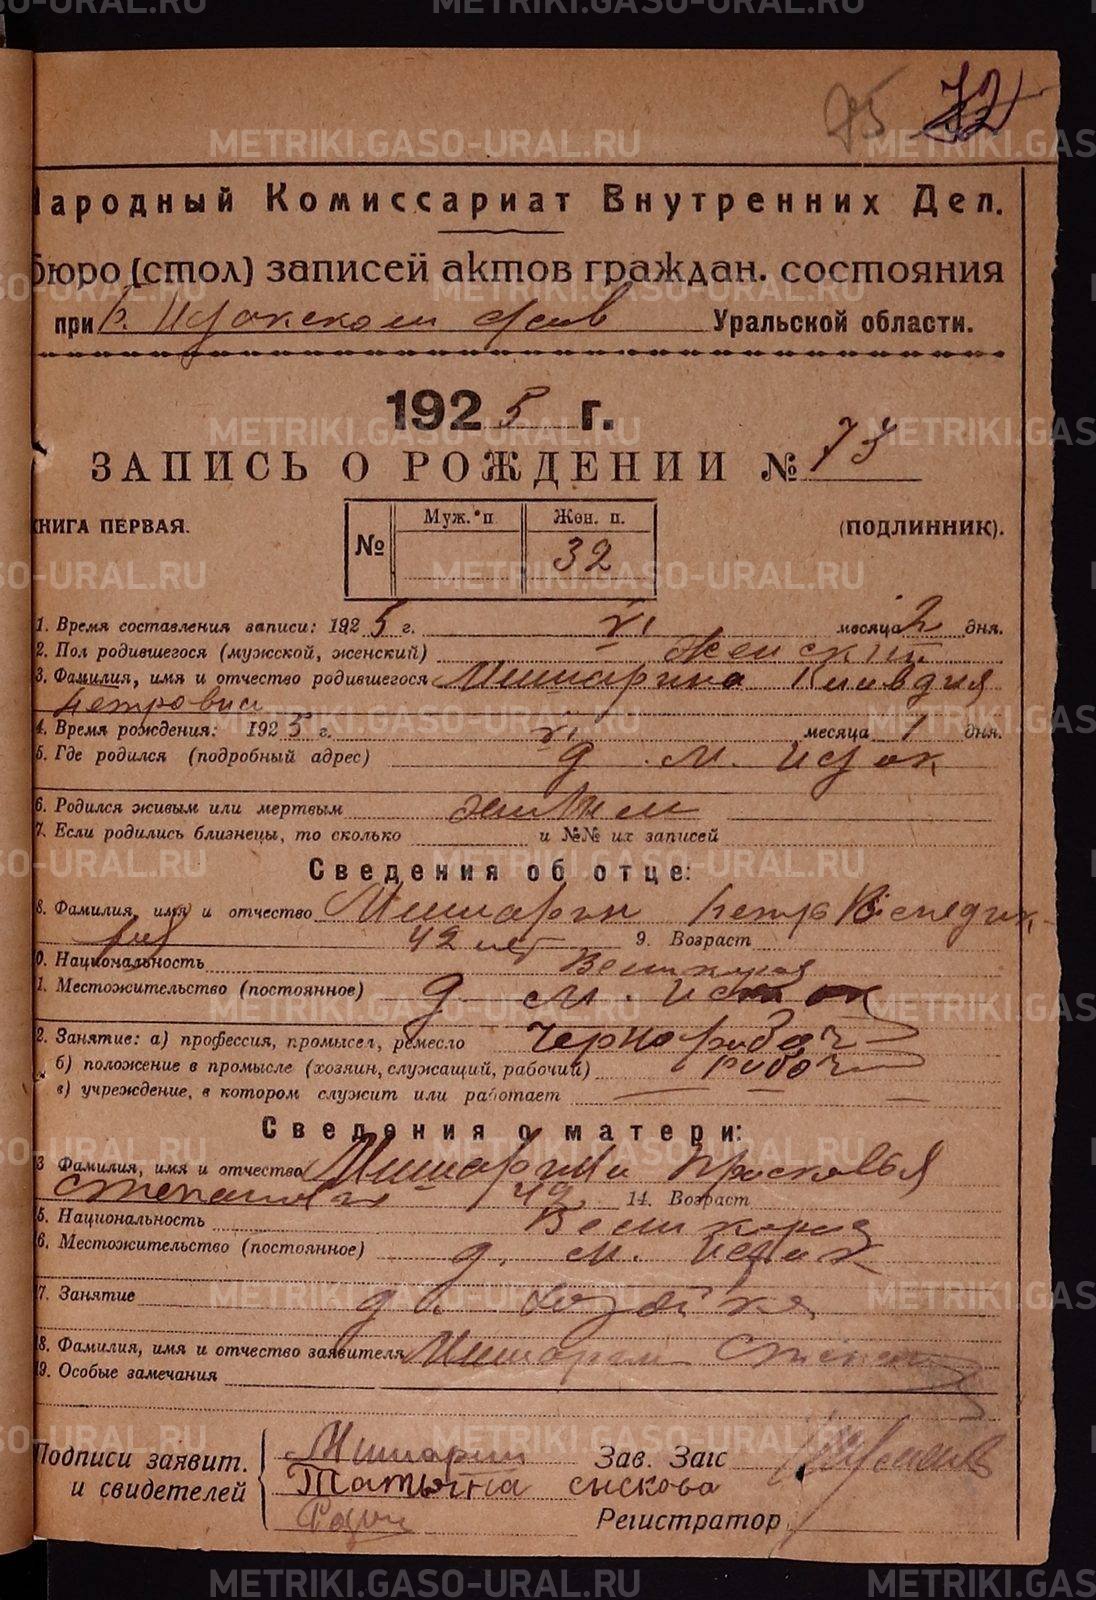 METRIKI.GASO-URAL.RU
75 72
Народный Комиссариат Внутренних Дел.
бюро (стол) записей актов граждан. состояния
при Б. Истокском Уральской области.
1925 г.
ЗАПИСЬ О РОЖДЕНИИ № 73
КНИГА ПЕРВАЯ. (ПОДЛИННИК).
№ Муж. п Жен. п.
32
1. Время составления записи: 1925 г. VI месяца 2 дня.
2. Пол родившегося (мужской, женский) Женский
3. Фамилия, имя и отчество родившегося Мишарина Клавдия
Петровна
4. Время рождения: 1925 г. VI месяца 1 дня.
5. Где родился (подробный адрес) д. М. Исток
6. Родился живым или мертвым живым
7. Если родились близнецы, то сколько и №№ их записей
Сведения об отце:
8. Фамилия, имя и отчество Мишарин Петр
42 лет 9. Возраст
0. Национальность Великорос
1. Местожительство (постоянное) д. М. Исток
2. Занятие: а) профессия, промысел, ремесло Чернорабоч
б) положение в промысле (хозяин, служащий, рабочий) рабоч
в) учреждение, в котором служит или работает
Сведения о матери:
3 Фамилия, имя и отчество Мишарина Прасковья
Степановна 42 14. Возраст
5. Национальность Великорос
6. Местожительство (постоянное) д. М. Исток
7. Занятие дом. хозяйка
8. Фамилия, имя и отчество заявителя Мишарин Степан
9. Особые замечания
Подписи заявит. и свидетелей Мишарин Зав. Загс
Татьяна сыскова
Регистратор